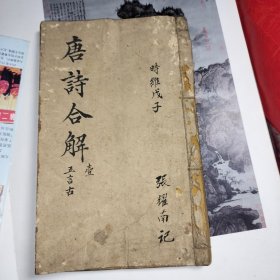 時維戊子
張耀南記
唐詩合解
壹
五言古